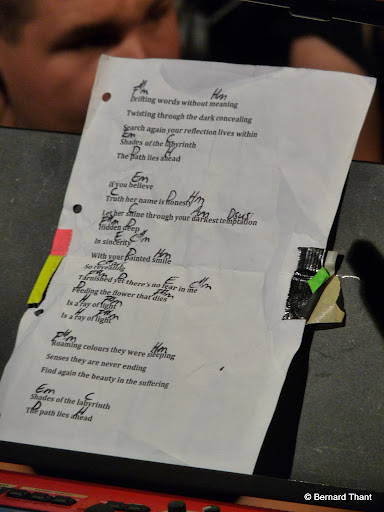 F#m Hm
Drifting words without meaning
Twisting through the dark concealing
Search again your reflection lives within
Em C
Shades of the labyrinth
D H
The path lies ahead
Em
If you believe
C D Hm
Truth her name is honesty
C Am Dsus
Let her shine through your darkest temptation
F#m D
Hidden deep
E C#m
In sincerity
F#m D
With your painted smile
So revealing
F#m D E C#m
Tarnished yet there's no fear in me
D F#m
Feeding the flower that dies
H F#m
Is a ray of light
H F#m
Is a ray of light
F#m Hm
Roaming colours they were sleeping
Senses they are never ending
Find again the beauty in the suffering
Em C
Shades of the labyrinth
D H
The path lies ahead
© Bernard Thant